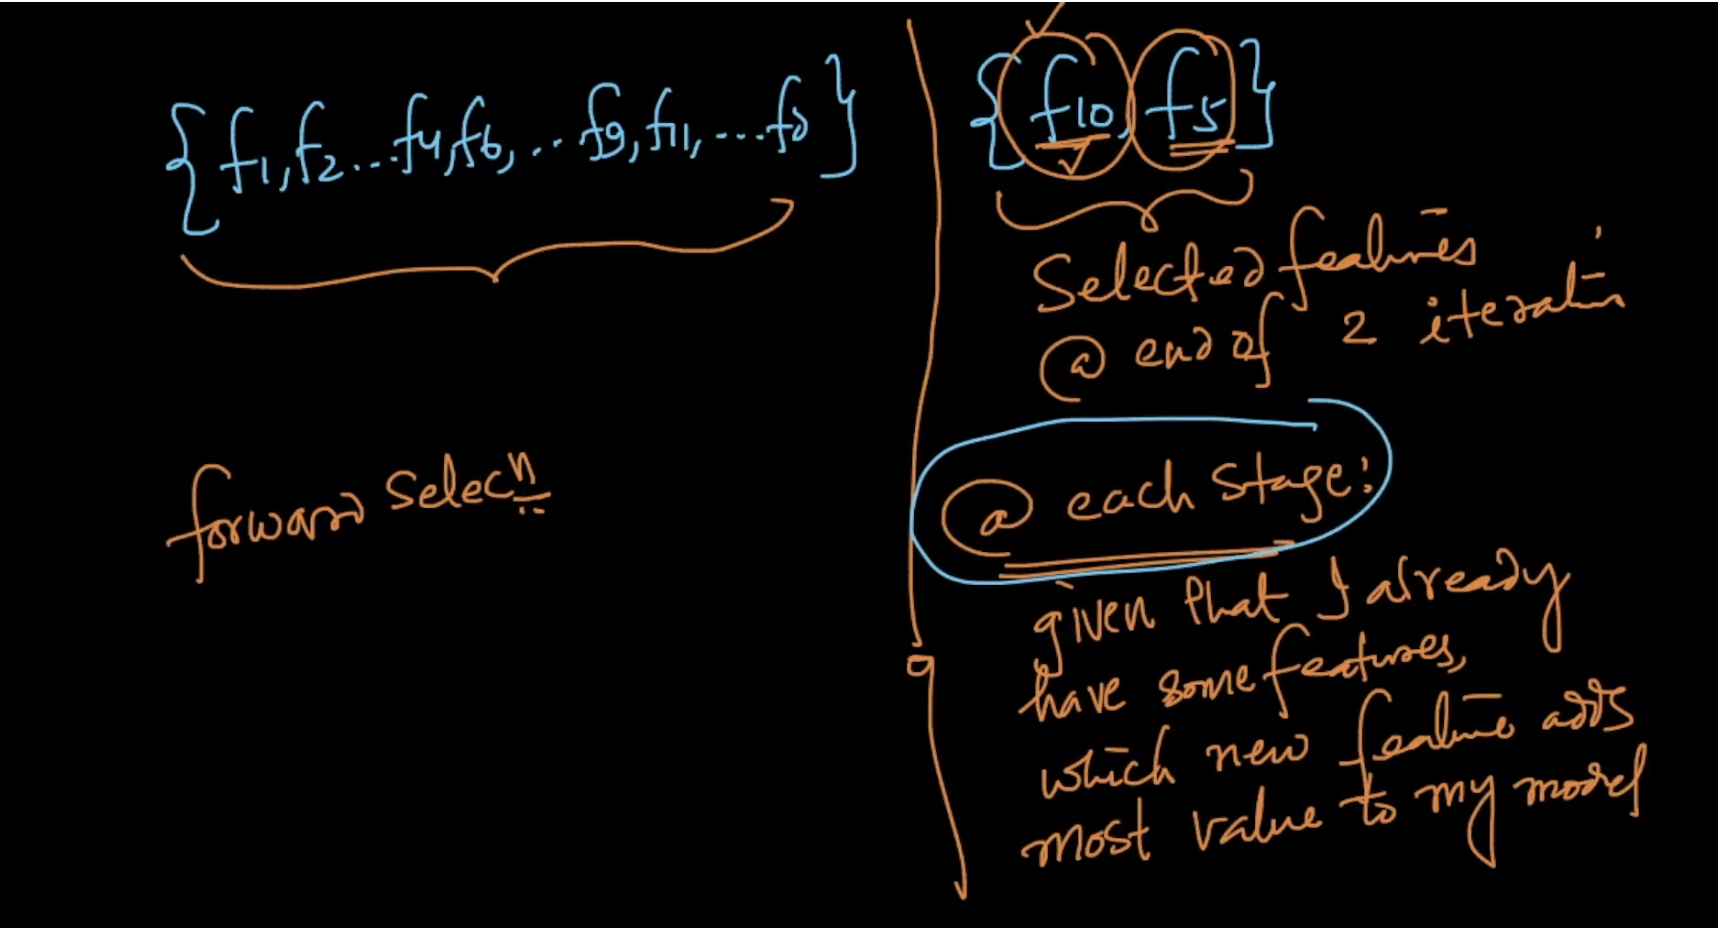 {f1, f2...f4, f6, ...f9, f11, ...fd}
{f10, f5}
Selected features
@ end of 2 iteratin
forward selecn
@ each stage:
given that I already
have some features,
which new feature adds
most value to my model